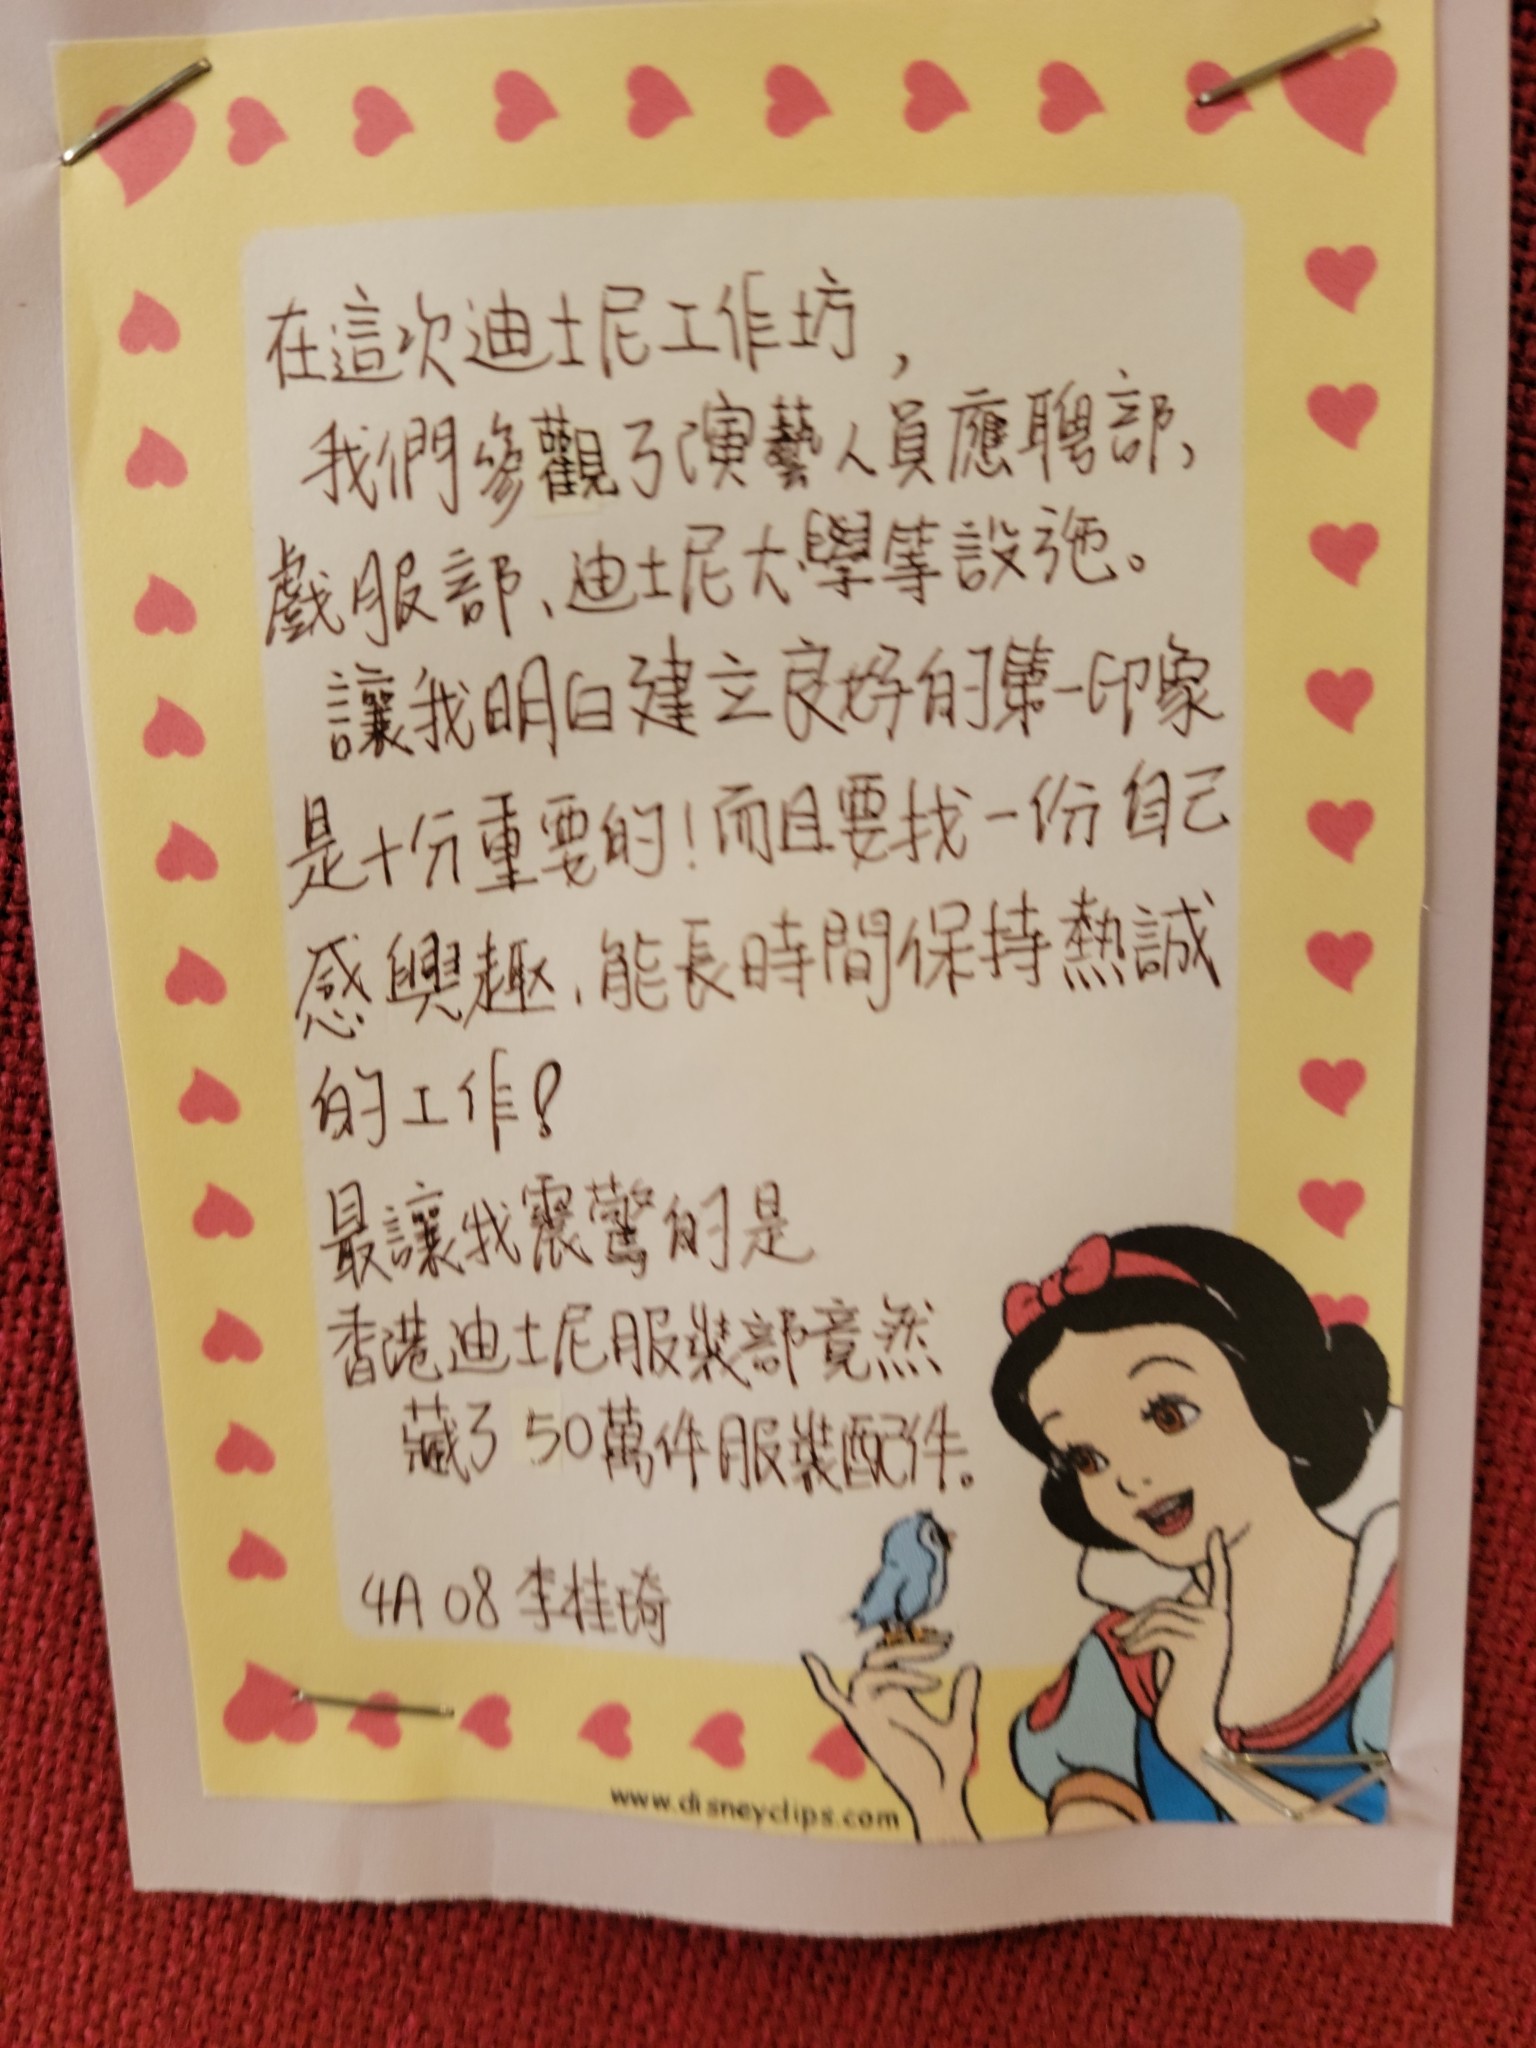 在這次迪士尼工作坊，
我們參觀了演藝人員應聘部、
戲服部、迪士尼大學等設施。
讓我明白建立良好的第一印象
是十分重要的！而且要找一份自己
感興趣、能長時間保持熱誠
的工作！
最讓我震驚的是
香港迪士尼服裝部竟然
藏了50萬件服裝配件。
4A 08 李桂琦
www.disneyclips.com